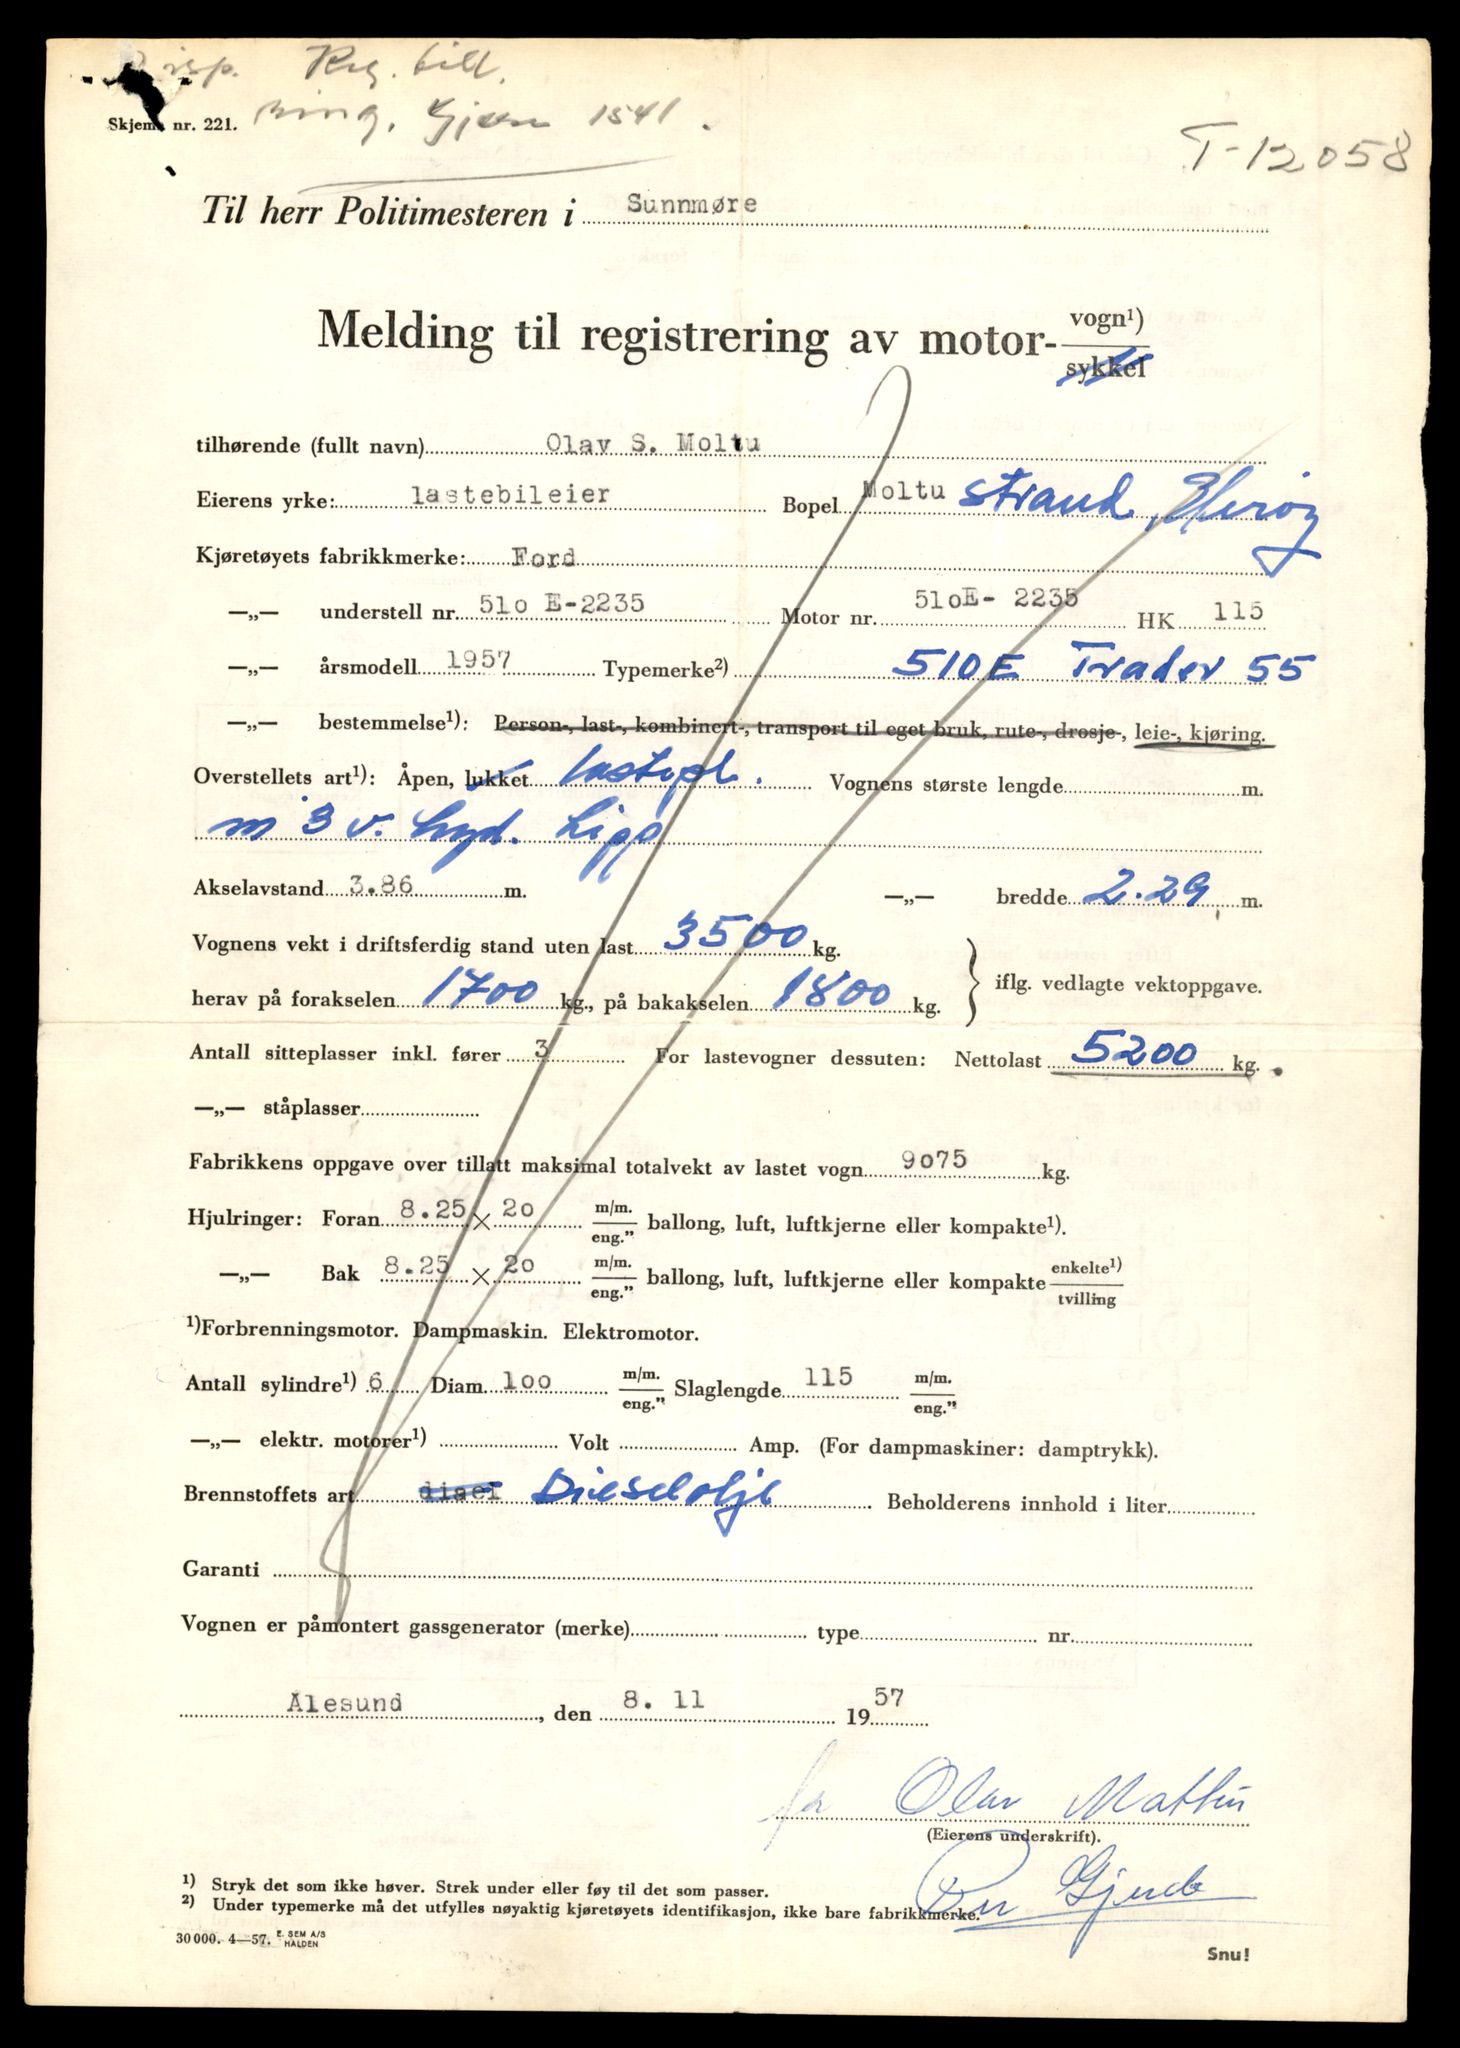 Reg. bill.
Skjema nr. 221. ring. Gjerde 1541.
T-12058
Til herr Politimesteren i Sunnmøre
Melding til registrering av motor- vogn¹)
sykkel
tilhørende (fullt navn) Olav S. Moltu
Eierens yrke: lastebileier Bopel Moltu strand, Herøy
Kjøretøyets fabrikkmerke: Ford
—„— understell nr. 510 E-2235 Motor nr. 510E- 2235 HK 115
—„— årsmodell 1957 Typemerke²) 510E Trader 55
—„— bestemmelse¹): Person-, last-, kombinert-, transport til eget bruk, rute-, drosje-, leie-, kjøring.
Overstellets art¹): Åpen, lukket lastepl. Vognens største lengde m.
m 3 v. hyd. tipp
Akselavstand 3.86 m. —„— bredde 2.29 m.
Vognens vekt i driftsferdig stand uten last 3500 kg.
herav på forakselen 1700 kg., på bakakselen 1800 kg. iflg. vedlagte vektoppgave.
Antall sitteplasser inkl. fører 3 For lastevogner dessuten: Nettolast 5200 kg.
—„— ståplasser
Fabrikkens oppgave over tillatt maksimal totalvekt av lastet vogn 9075 kg.
Hjulringer: Foran 8.25 × 20 m/m. eng.” ballong, luft, luftkjerne eller kompakte¹).
—„— Bak 8.25 × 20 m/m. eng.” ballong, luft, luftkjerne eller kompakte enkelte¹) tvilling
¹)Forbrenningsmotor. Dampmaskin. Elektromotor.
Antall sylindre¹) 6 Diam. 100 m/m. eng.” Slaglengde 115 m/m. eng.”
—„— elektr. motorer¹) Volt Amp. (For dampmaskiner: damptrykk).
Brennstoffets art disel Dieselolje Beholderens innhold i liter
Garanti
Vognen er påmontert gassgenerator (merke) type nr.
Alesund, den 8. 11 1957
for Olav Moltu
(Eierens underskrift).
Per Gjerde
¹) Stryk det som ikke høver. Strek under eller føy til det som passer.
²) Under typemerke må det utfylles nøyaktig kjøretøyets identifikasjon, ikke bare fabrikkmerke.
30 000. 4—57. E. SEM A/S HALDEN
Snu!